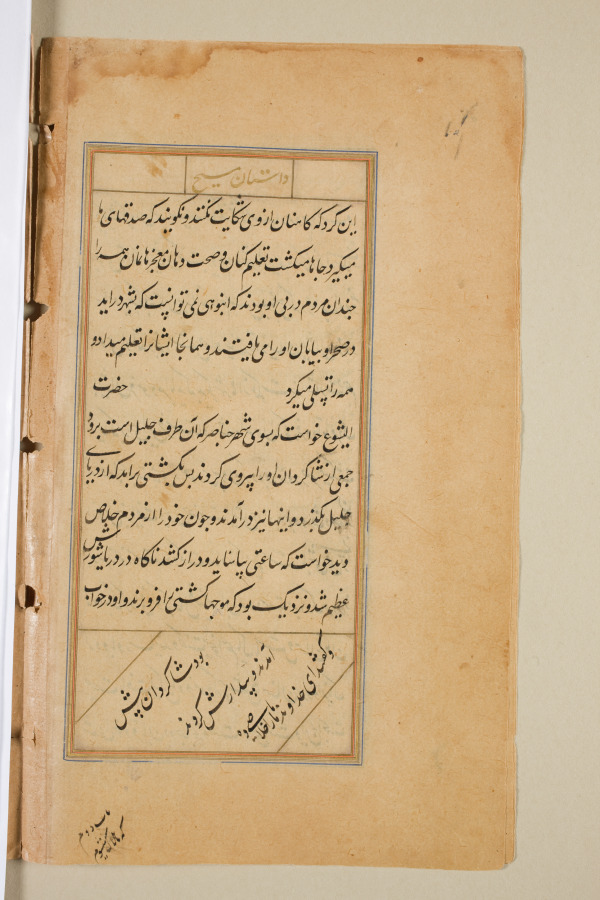 داستان مسیح
این کرد که کاهنان از وی شکایت نکنند و نکویند که صدقهای ها
میکیرد جاها میکشت تعلیم کنان و صحت دهان معجزها نمان همه را
چندان مردم در پی او بودند که انبوهی نمی توانست که بشهر دراید
در صحرا و بیابان او را می یافتند و همانجا ایشانرا تعلیم میداد و
همه را تسلی میکرد حضرت
ایشوع خواست که بسوی شهر جناصر که آن طرف جلیل است برود
جمعی از شاکردان او را پیروی کردند پس بکشتی برامد که از دریای
جلیل بکذرد و اینها نیز درآمدند و چون خود را از مردم خلاص
دید خواست که ساعتی بیاساید و دراز کشد ناکاه در دریا شورش
عظیم شد و نزدیک بود که موجها کشتی را فرو برند و او در خواب
بود شاکردان پیش
آمدند و بیدارش کردند
و کفتند ای خداوند ما را خلاصی ده
که ما هلاک میشویم